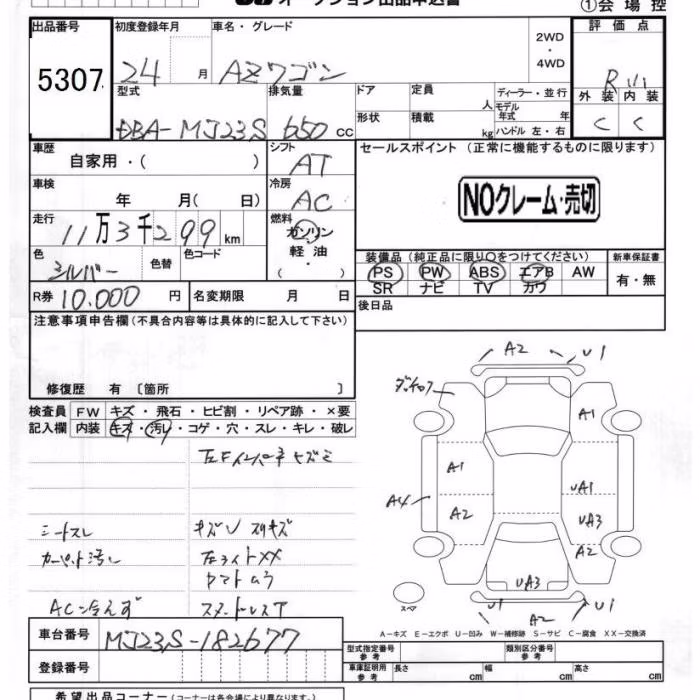 オークション出品申込書
① 会 場 控
出品番号
初度登録年月
車名・グレード
2WD
・
4WD
評 価 点
5307
24 月
AZワゴン
R
型式
排気量
ドア
定員
人
ディーラー・並行
モデル年式
年
外 装
内 装
DBA-MJ23S
650 cc
形状
積載
kg
ハンドル 左・右
C
C
車歴
自家用・( )
シフト
AT
セールスポイント (正常に機能するものに限ります)
車検
年 月( 日)
冷房
AC
NOクレーム・売切
走行
11万3千299 km
燃料
ガソリン
軽 油
( ・ )
色
シルバー
色替
色コード
装備品 (純正品に限り○をつけてください)
新車保証書
PS PW ABS エアB AW
SR ナビ TV カワ
有・無
R券 10.000 円
名変期限 月 日
後日品
注意事項申告欄(不具合内容等は具体的に記入して下さい)
修復歴 有 〔箇所 〕
検査員
記入欄
FW キズ ・ 飛石 ・ ヒビ割 ・ リペア跡 ・ ×要
内装 キズ ・ 汚レ ・ コゲ ・ 穴 ・ スレ ・ キレ ・ 破レ
シートスレ
カーペット汚レ
AC冷えず
キズU スリキズ
左ライトXX
ヤマトムラ
A2
U1
A1
A1
UA1
A4
A2
UA3
A2
UA3
スペア
U1
A2
U1
A-キズ E-エクボ U-凹み W-補修跡 S-サビ C-腐食 XX-交換済
車台番号
MJ23S-182677
登録番号
型式指定番号
参 考
類別区分番号
参 考
車庫証明用
参 考
長さ cm
幅 cm
高さ cm
希望出品コーナー(コーナーは各会場により異なります。)